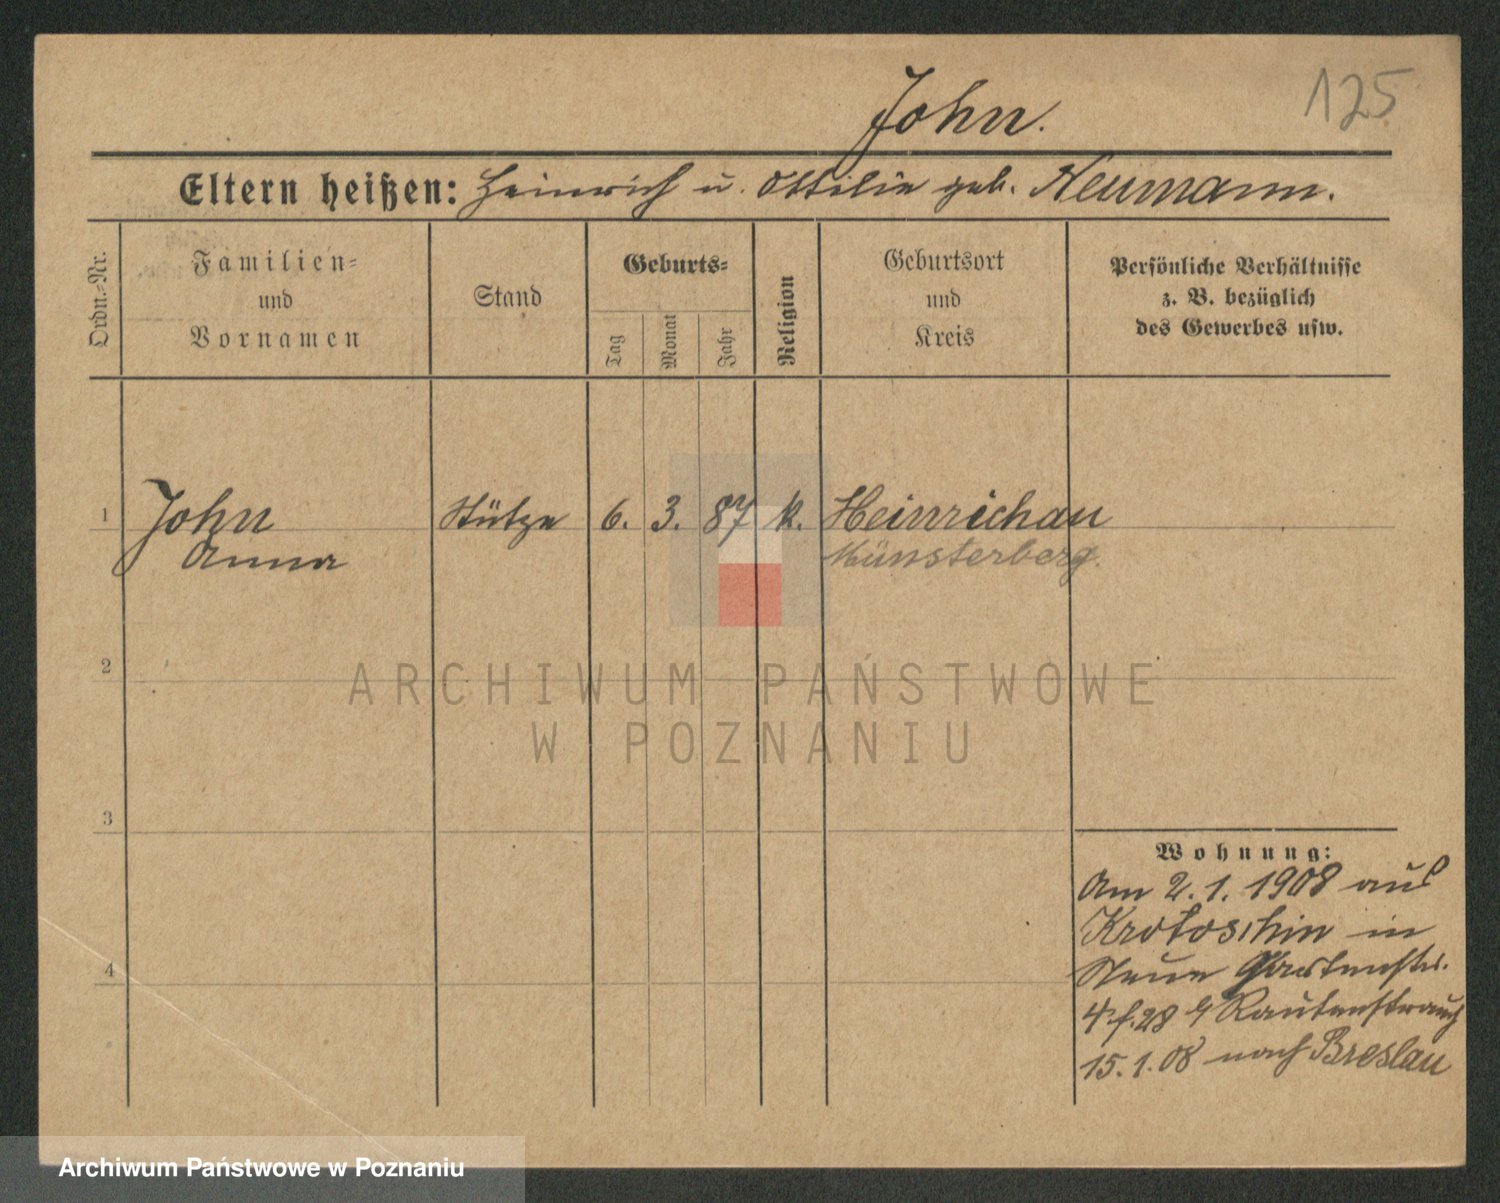 John.
125
Eltern heißen: Heinrich u. Ottilie geb. Neumann.
Ordn.-Nr.
Familien-
und
Vornamen
Stand
Geburts-
Tag
Monat
Jahr
Religion
Geburtsort
und
Kreis
Persönliche Verhältnisse
z. B. bezüglich
des Gewerbes usw.
1 John Stütze 6. 3. 87 k. Heinrichau
Anna Münsterberg.
2
ARCHIWUM PAŃSTWOWE
W POZNANIU
3
Wohnung:
Am 2.1.1908 aus
Krotoschin in
Neue Gartenstr.
4 28 Rautenstrauch
15.1.08 nach Breslau
4
Archiwum Państwowe w Poznaniu